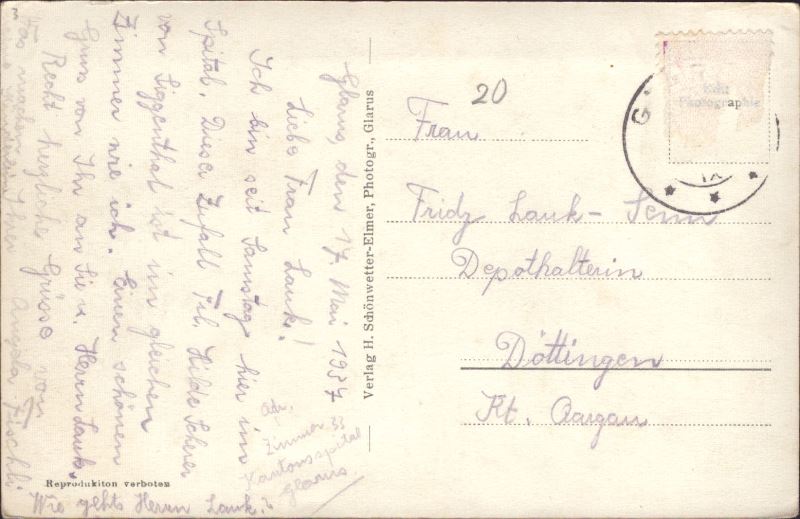 Glarus, den 17 Mai 1957
Liebe Frau Lauk!
Ich bin seit Samstag hier im
Spital. Dieser Zufall Frl. Hilde Scherer
von Siggenthal ist im gleichen
Zimmer wie ich. Einen schönen
Gruss von Ihr an Sie u. Herrn Lauk.
Recht herzliche Grüsse von
Angela Fischli
Was machen
Wie gehts Herrn Lauk?
Adr.
Zimmer 33
Kantonsspital
Glarus.
Reprodukiton verboten
Verlag H. Schönwetter-Elmer, Photogr., Glarus
20
Echt
Photographie
G
IX
Frau
Fridz Lauk-Senn
Depothalterin
Döttingen
Kt. Aargau
3